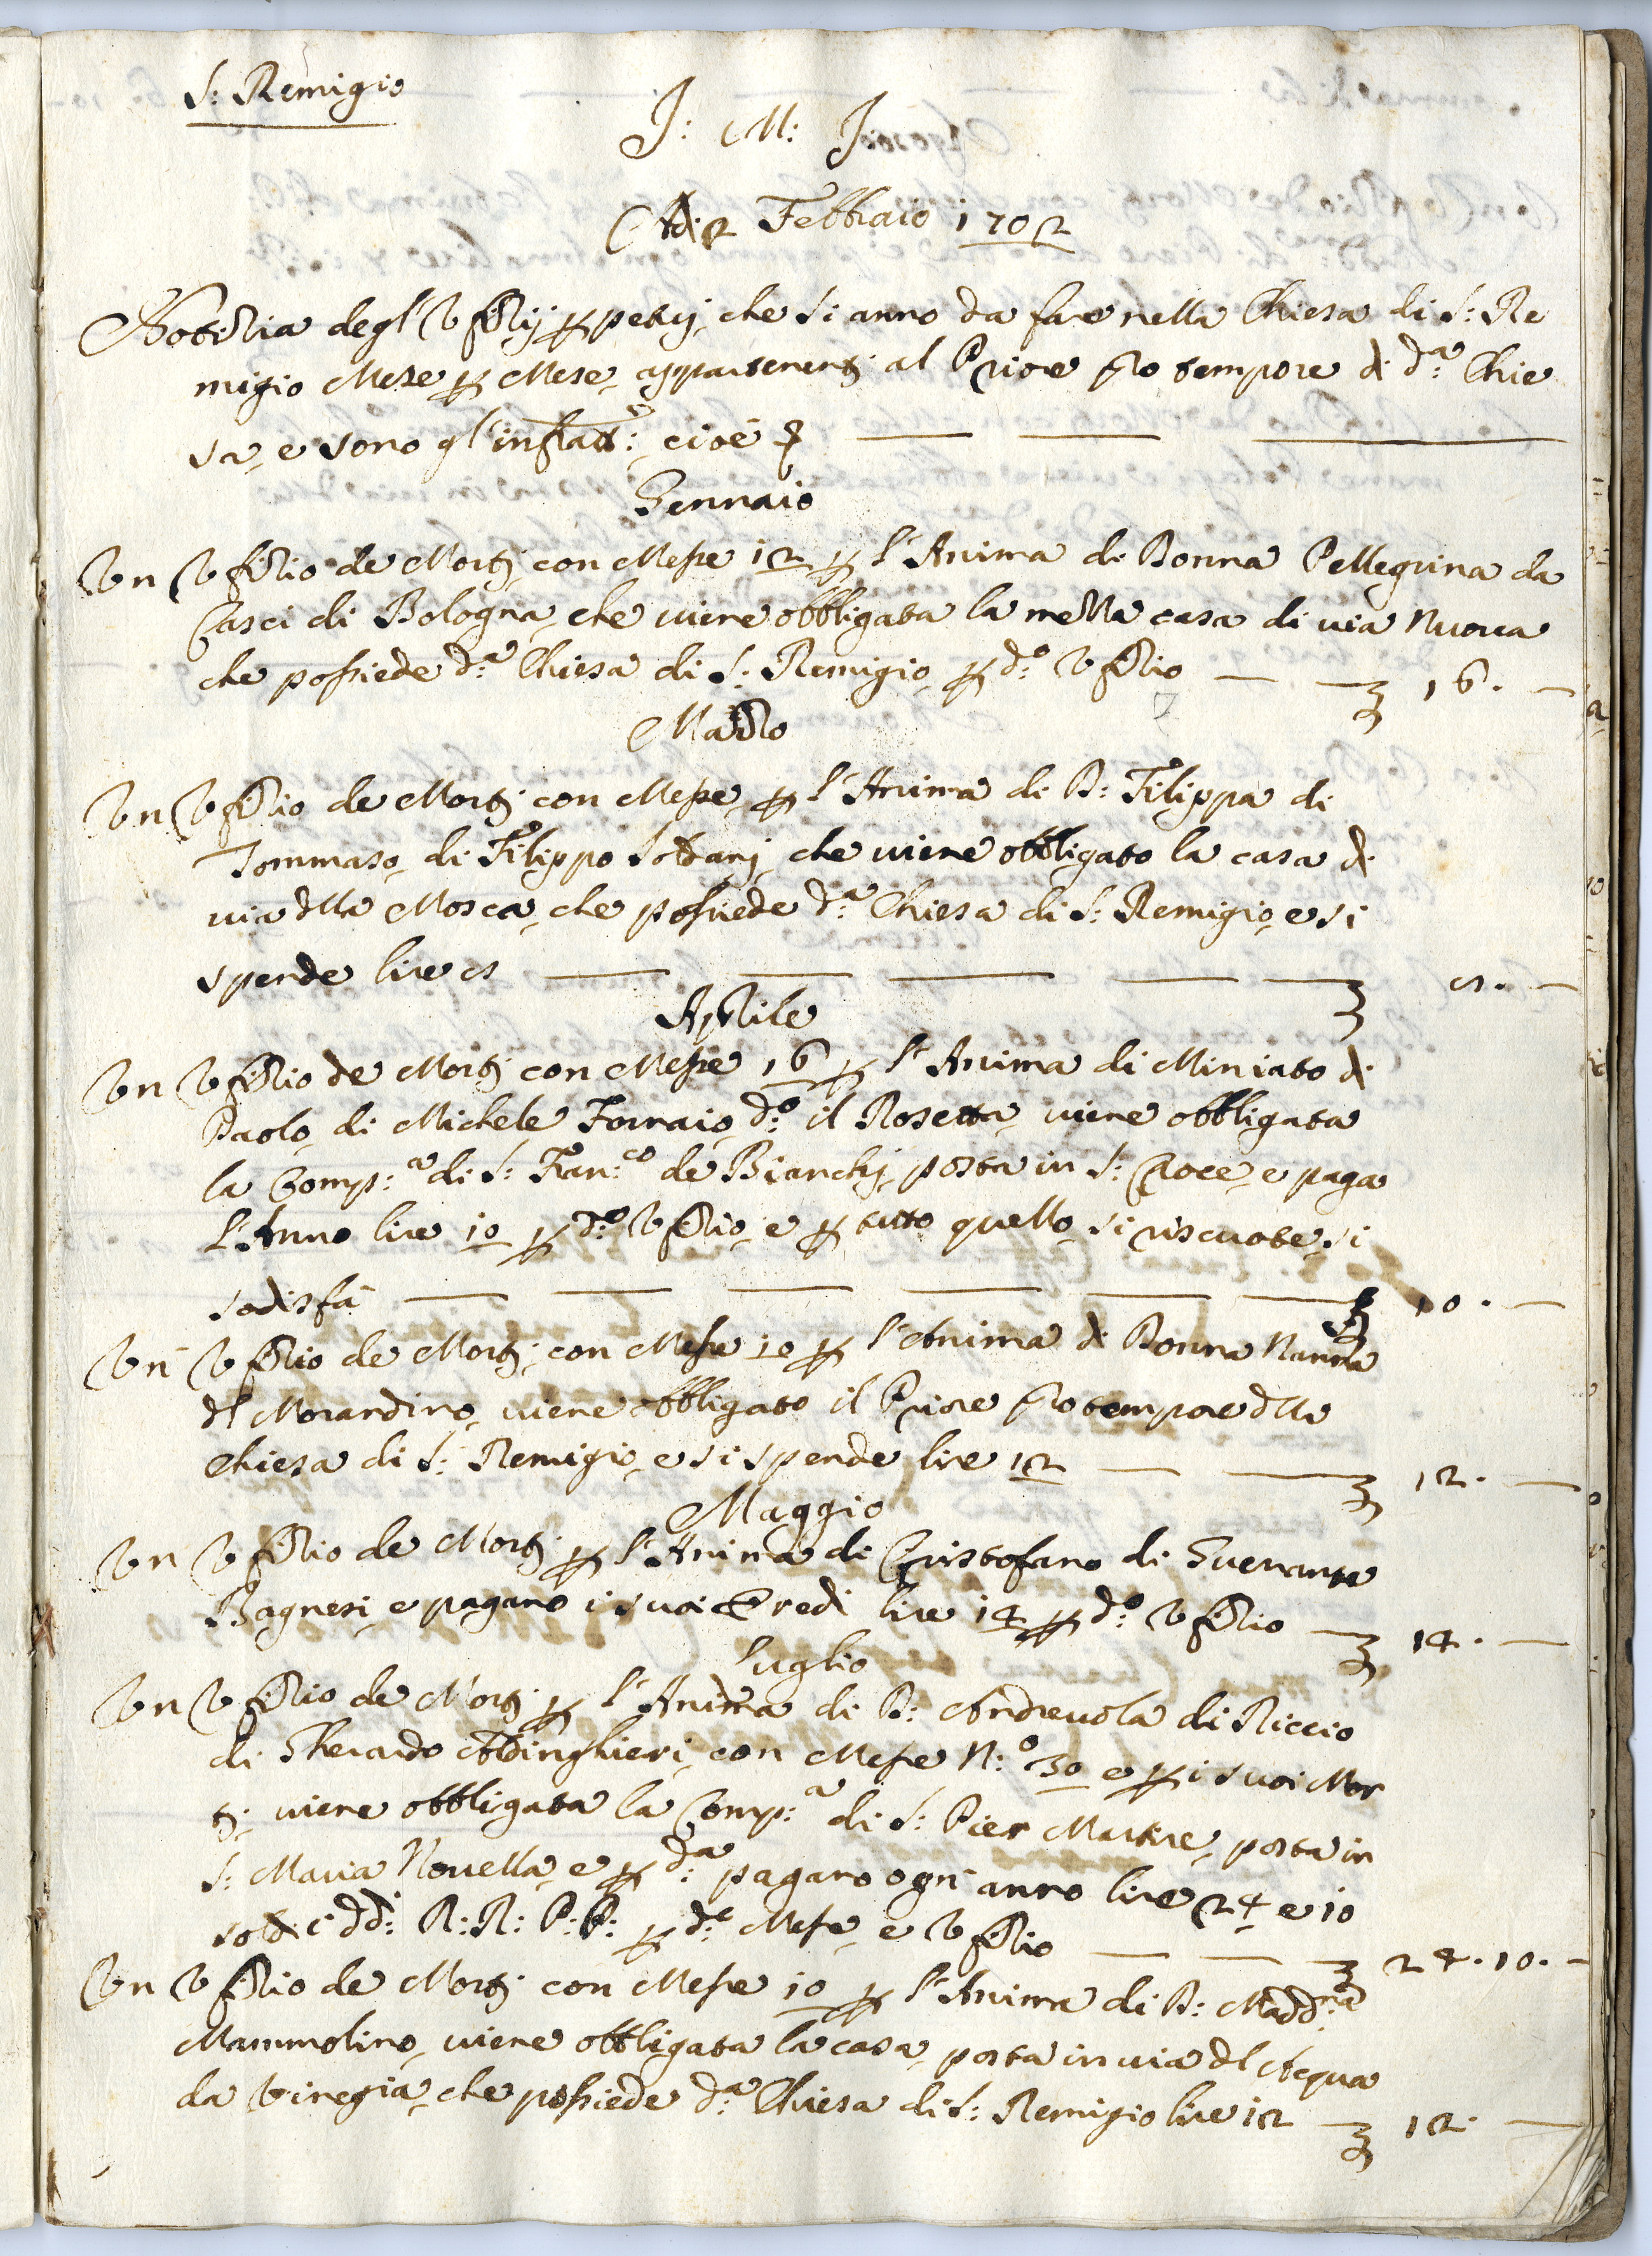 S: Remigio
J: M: J
Adi 2 Febbraio 1702
Notizia degl'Ufizij ppetuj, che si anno da fare nella Chiesa di S: Re
migio Mese p Mese, appartenenti al Priore pro tempore di d:a Chie
sa, e sono gl'infratti: cioè
Gennaio
Un Ufizio de Morti con Messe 12 p l'Anima di Donna Pellegrina da
Casci di Bologna, che viene obbligata la metta casa di via Nuova
che possiede d:a Chiesa di S: Remigio, p d:o Ufizio — — 16. —
Marzo
Un Ufizio de Morti con Messe, p l'Anima di D: Filippa di
Tommaso, di Filippo Soldani, che viene obbligato la casa di
via dlla Mosca, che possiede d:a Chiesa di S: Remigio, e si
spende lire
Aprile
Un Ufizio de Morti con Messe 16 p l'Anima di Miniato di
Paolo, di Michele Fornaio, d:o il Rosetta, viene obbligata
la Comp:a di S: Fran:co de Bianchi, posta in S: Croce, e paga
l'Anno lire 10 p d:o Ufizio, e p tutto quello, si riscuote, si
sodisfà — — — — — — 10. —
Un Ufizio de Morti, con Messe 10 p l'Anima di Donna Nanna
dl Morandino, viene obbligato il Priore pro tempore dlla
Chiesa di S: Remigio, e si spende lire 12 — — 12. —
Maggio
Un Ufizio de Morti p l'Anima di Cristofano di Guerrante
Bagnesi, e pagano i suoi Eredi lire 14 p d:o Ufizio — 14. —
Luglio
Un Ufizio de Morti p l'Anima di D: Andreuola di Riccio
di Gherardo Aldinghieri, con Messe N:o 30 e p i suoi Mor
ti, viene obbligata la Comp:a di S: Pier Martire, posta in
S: Maria Novella, e p d:a pagano ogn'anno lire 24 e 10
soldi i dd:i R: R: P: P: p d:e Messe, e Ufizio — — 24. 10. —
Un Ufizio de Morti con Messe 10 p l'Anima di D: Madd:na
Mammolino, viene obbligata la casa, posta in via dl Acqua
da Vinegia, che possiede d:a Chiesa di S: Remigio lire 12 — 12. —